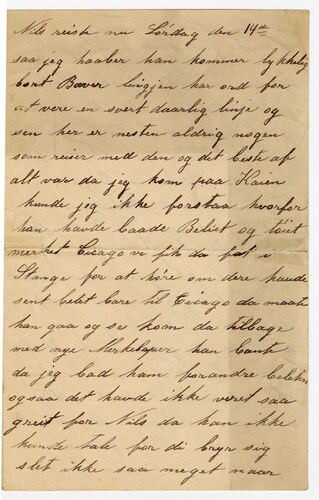 Nils reiste nu Lórdag den 14de
saa jeg haaber han kommer lykkelig
bort Baver lingjen har ord for
at vere en svert daarlig linje og
sen her er nesten aldrig nogen
som reiser med den og det beste af
alt var da jeg kom paa Kaien
kunde jeg ikke forstaa hvorfor
han havde baade Beliet og töiet
merket Cicago vi fik da fat i
Stange for at hóre om dere havde
sent belet bare til Cicago da maatte
han gaa og se kom da tilbage
med nye Merkelaper han bante
da jeg bad ham forandre beleten
ogsaa det havde ikke veret saa
greit for Nils da han ikke
kunde tale for di bryr sig
slet ikke saa meget naar